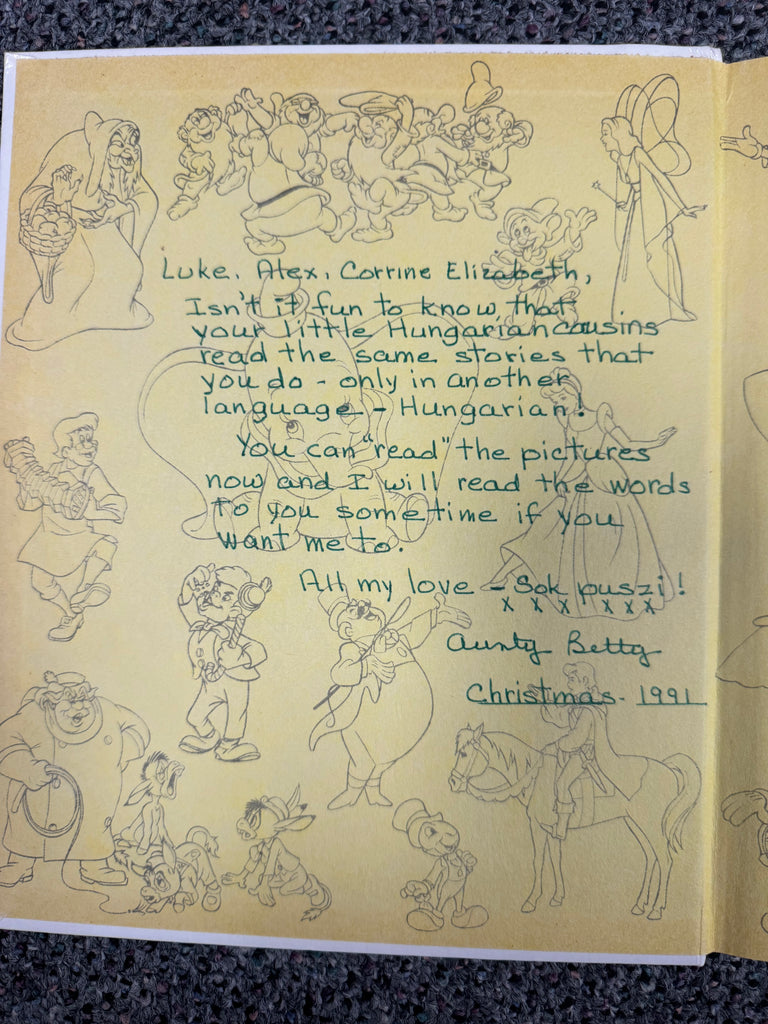 Luke, Alex, Corrine Elizabeth,
Isn't it fun to know, that
your little Hungarian cousins
read the same stories that
you do - only in another
language - Hungarian!
You can "read" the pictures
now and I will read the words
to you sometime if you
want me to.
All my love - Sok puszi!
x x x x x x
Aunty Betty
Christmas - 1991